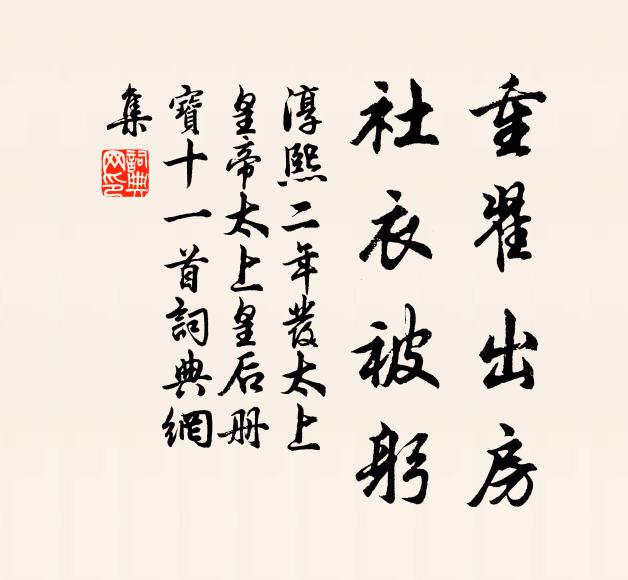 重翟出房
社衣被躬
淳熙二年發太上
皇帝太上皇后册
寶十一首詞典網
集
詞典
网印